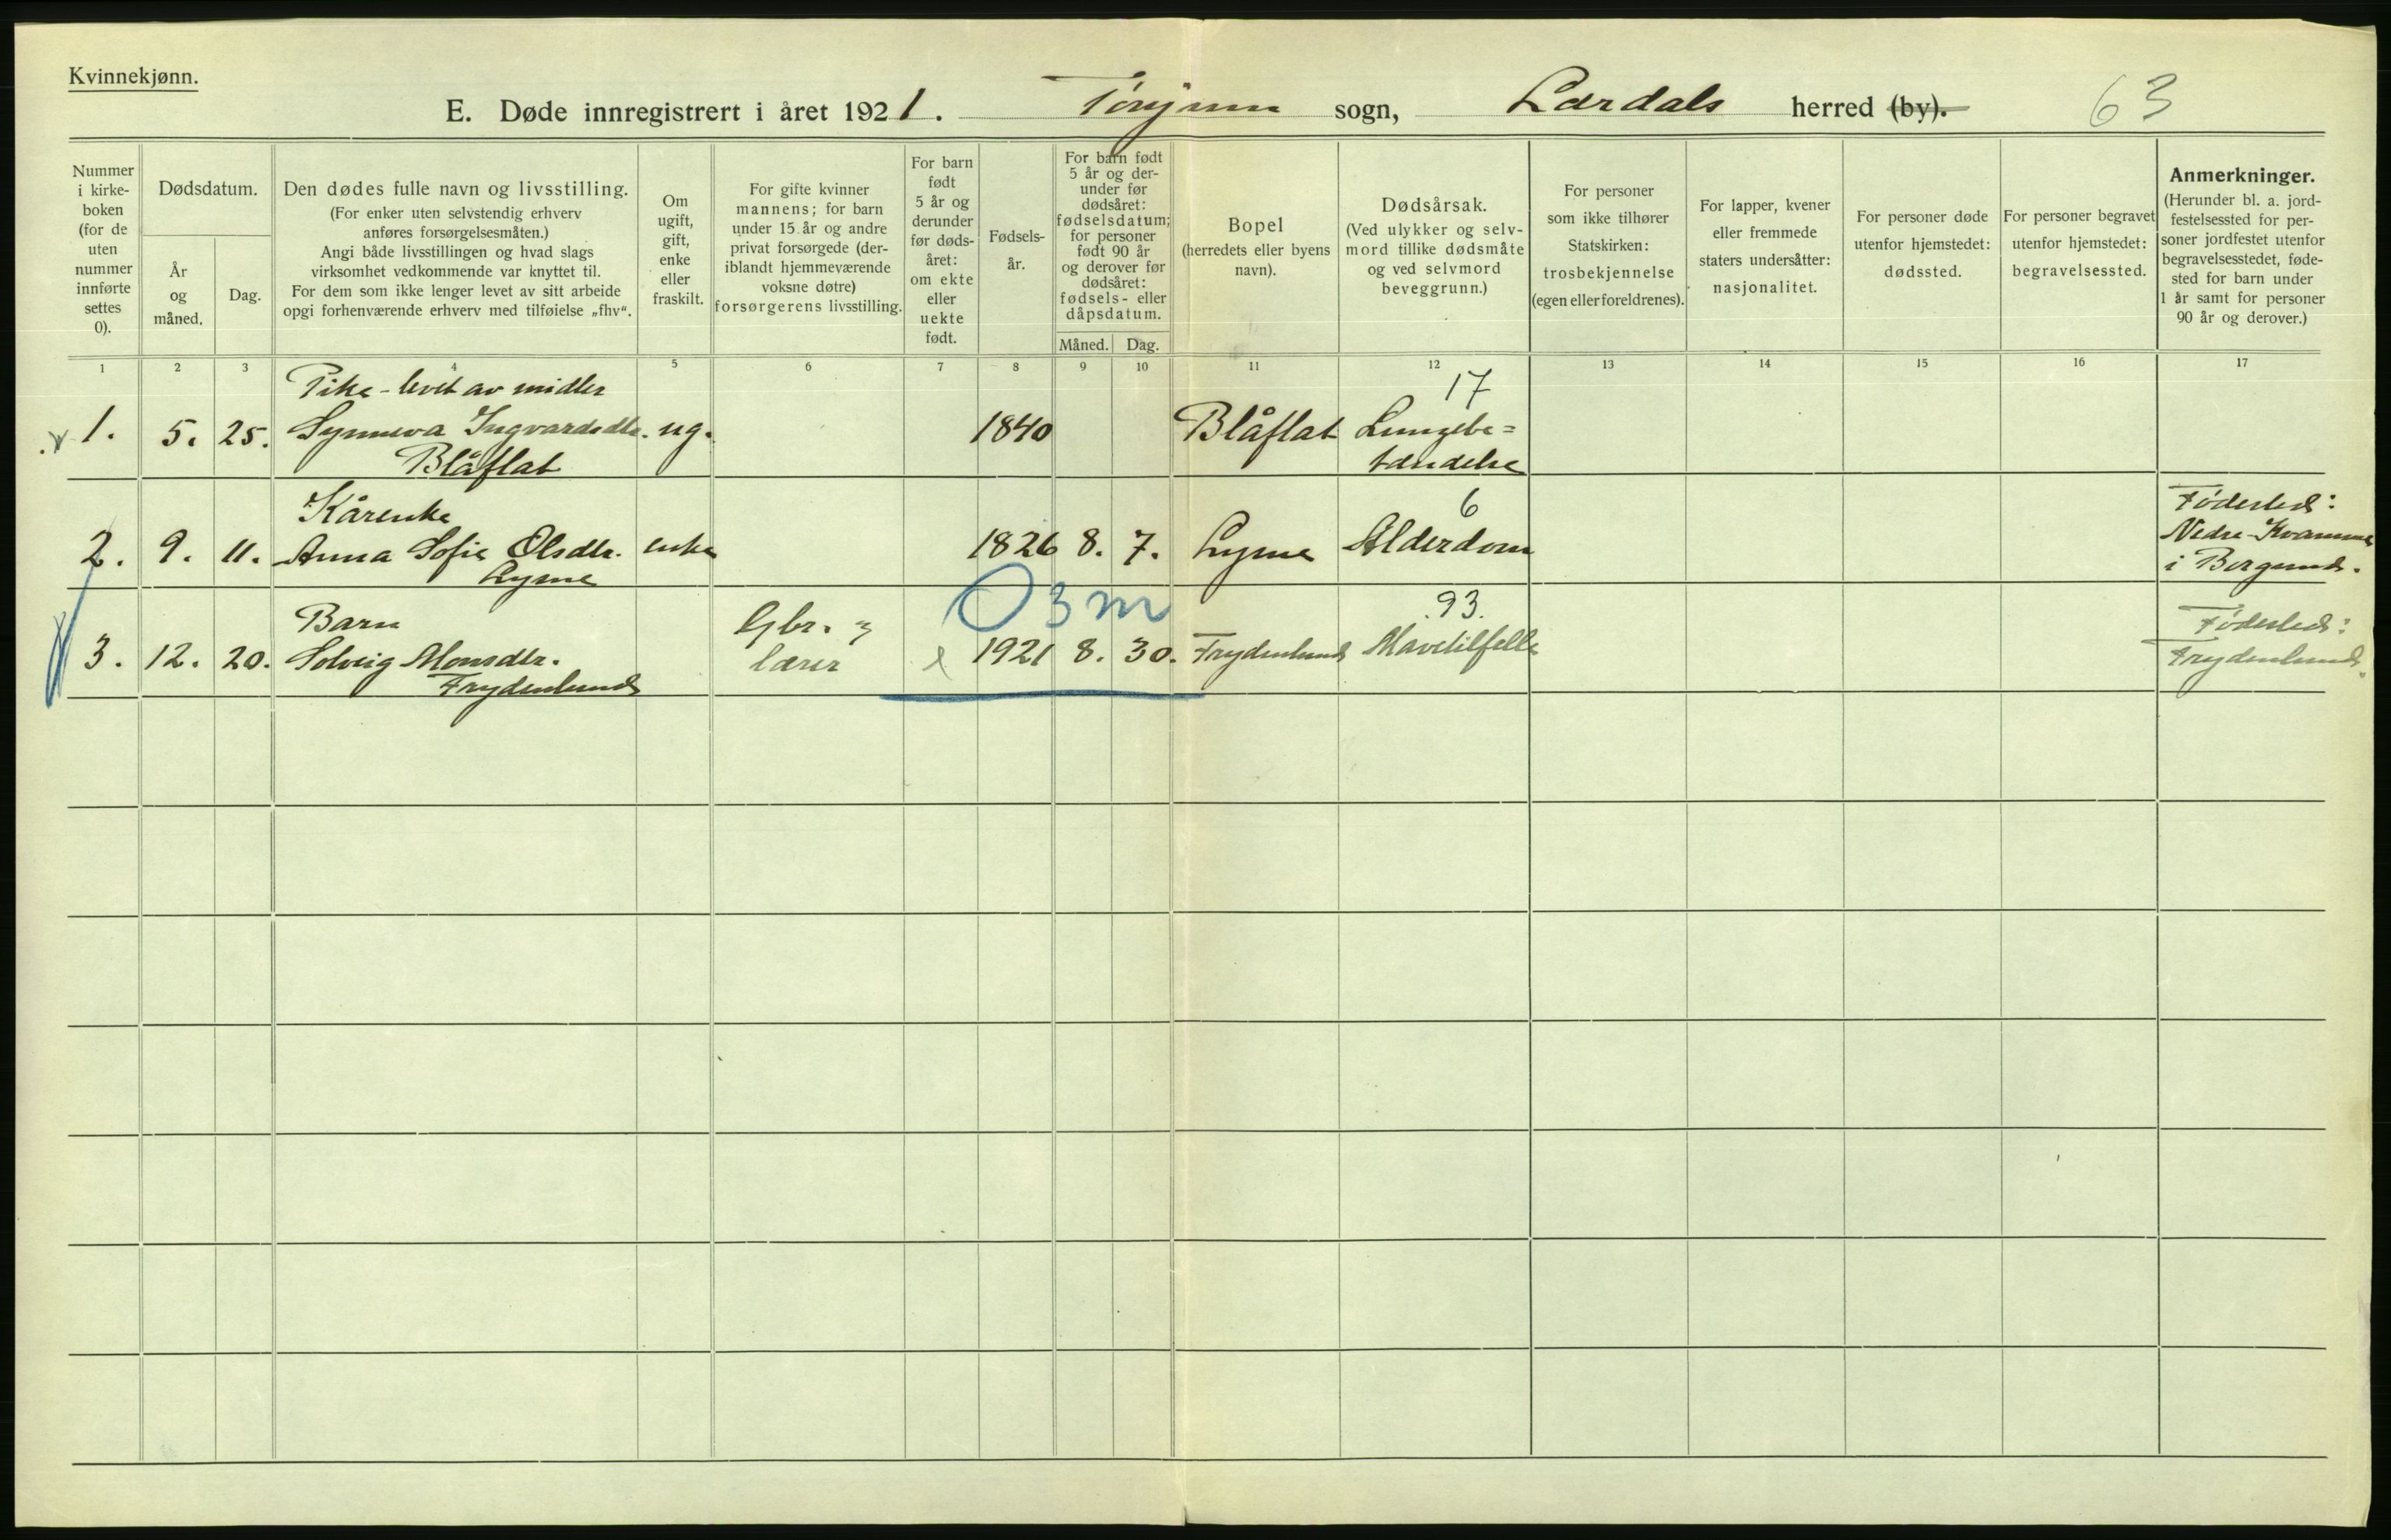 Kvinnekjønn.
E. Døde innregistrert i året 1921. Tønjum sogn, Lærdals herred (by). 63
Nummer i kirke-boken (for de uten nummer innførte settes 0).
Dødsdatum.
År og måned.
Dag.
Den dødes fulle navn og livsstilling.
(For enker uten selvstendig erhverv
anføres forsørgelsesmåten.)
Angi både livsstillingen og hvad slags
virksomhet vedkommende var knyttet til.
For dem som ikke lenger levet av sitt arbeide
opgi forhenværende erhverv med tilføielse „fhv“.
Om ugift, gift, enke eller fraskilt.
For gifte kvinner
mannens; for barn
under 15 år og andre
privat forsørgede (der-
iblandt hjemmeværende
voksne døtre)
forsørgerens livsstilling.
For barn født 5 år og derunder før døds-året: om ekte eller uekte født.
Fødsels-år.
For barn født
5 år og der-
under før
dødsåret:
fødselsdatum;
for personer
født 90 år
og derover før
dødsåret:
fødsels- eller
dåpsdatum.
Måned. Dag.
Bopel
(herredets eller byens
navn).
Dødsårsak.
(Ved ulykker og selv-
mord tillike dødsmåte
og ved selvmord
beveggrunn.)
For personer
som ikke tilhører
Statskirken:
trosbekjennelse
(egen eller foreldrenes).
For lapper, kvener
eller fremmede
staters undersåtter:
nasjonalitet.
For personer døde
utenfor hjemstedet:
dødssted.
For personer begravet
utenfor hjemstedet:
begravelsessted.
Anmerkninger.
(Herunder bl. a. jord-
festelsessted for per-
soner jordfestet utenfor
begravelsesstedet, føde-
sted for barn under
1 år samt for personer
90 år og derover.)
1 2 3 4 5 6 7 8 9 10 11 12 13 14 15 16 17
Pike - levet av midler 17
1. 5. 25. Synneva Ingvardsdtr. ug. 1840 Blåflat Lungebe=
Blåflat tændelse
Kårenke 6 Fødested:
2. 9. 11. Anna Sofie Olsdtr. enke 1826 8. 7. Lysne Alderdom Nedre-Kvamme
Lysne i Borgund.
0 3 m
Barn Gbr. 93. Fødested:
3. 12. 20. Solveig Monsdtr. lærer e 1921 8. 30. Frydenlund Mavetilfelle Frydenlund.
Frydenlund